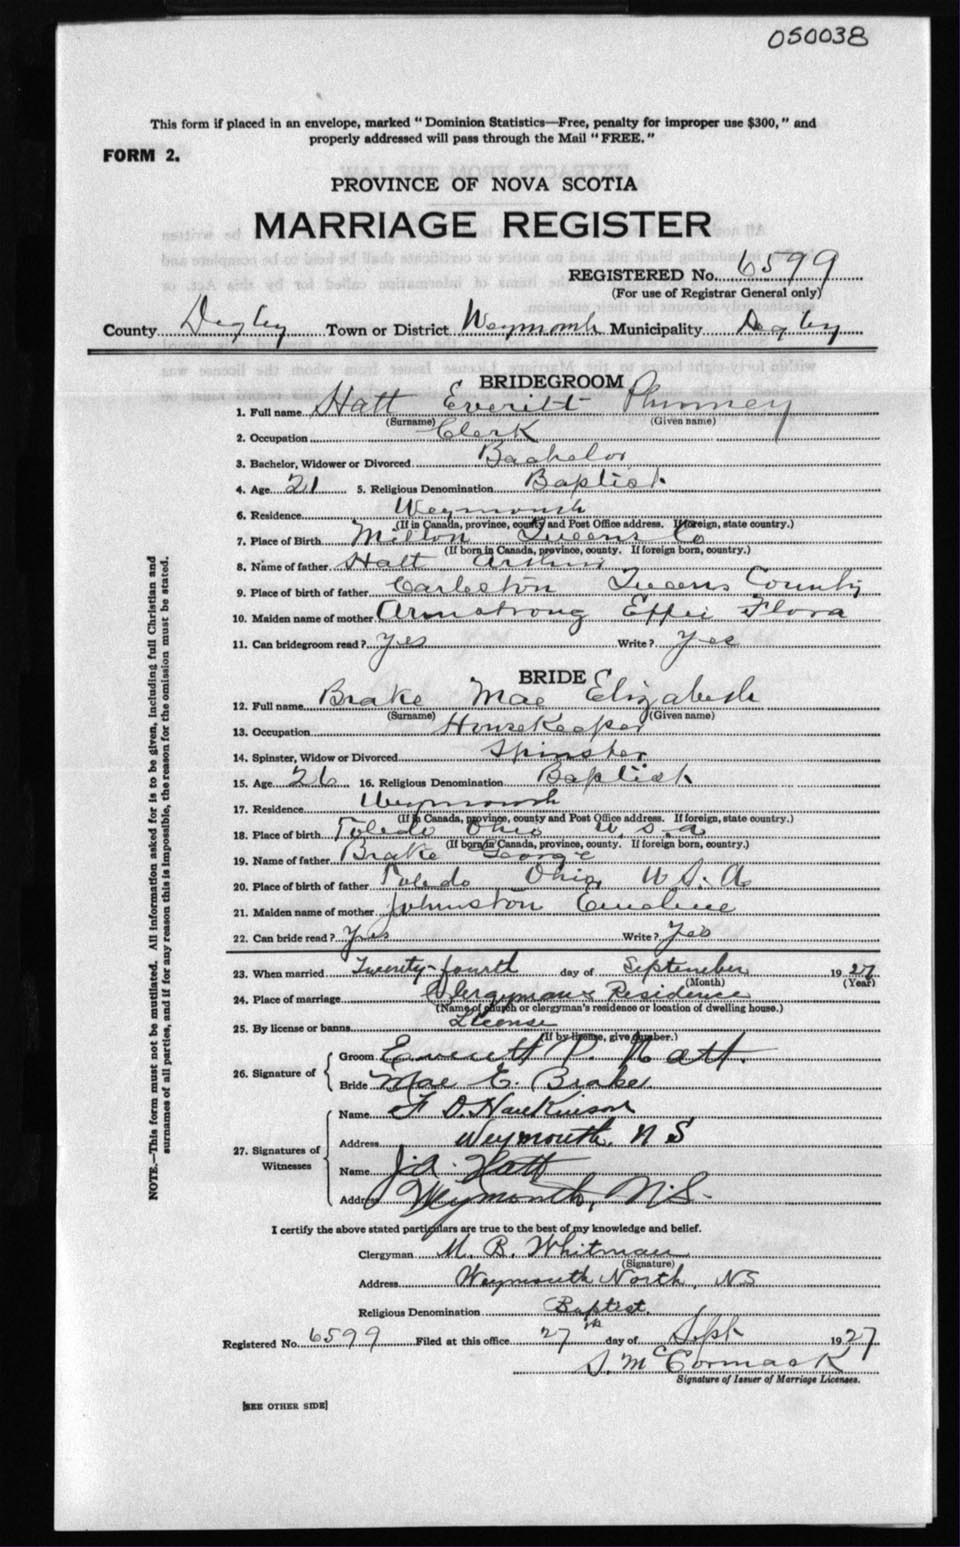 050038
This form if placed in an envelope, marked "Dominion Statistics—Free, penalty for improper use $300," and
properly addressed will pass through the Mail "FREE."
FORM 2.
PROVINCE OF NOVA SCOTIA
MARRIAGE REGISTER
REGISTERED No. 6599
(For use of Registrar General only)
County Digby Town or District Weymouth Municipality Digby
BRIDEGROOM
1. Full name Hatt Everitt Phinney
(Surname) (Given name)
2. Occupation Clerk
3. Bachelor, Widower or Divorced Bachelor
4. Age 21 5. Religious Denomination Baptist
6. Residence Weymouth
(If in Canada, province, county and Post Office address. If foreign, state country.)
7. Place of Birth Milton Queens Co
(If born in Canada, province, county. If foreign born, country.)
8. Name of father Hatt Arthur
9. Place of birth of father Carleton Queens County
10. Maiden name of mother Armstrong Effie Flora
11. Can bridegroom read? Yes Write? Yes
BRIDE
12. Full name Brake Mae Elizabeth
(Surname) (Given name)
13. Occupation Housekeeper
14. Spinster, Widow or Divorced Spinster
15. Age 26 16. Religious Denomination Baptist
17. Residence Weymouth
(If in Canada, province, county and Post Office address. If foreign, state country.)
18. Place of birth Toledo Ohio U.S.A
(If born in Canada, province, county. If foreign born, country.)
19. Name of father Brake George
20. Place of birth of father Toledo Ohio U.S.A
21. Maiden name of mother Johnston Emeline
22. Can bride read? Yes Write? Yes
23. When married Twenty-fourth day of September 1927
(Month) (Year)
24. Place of marriage Clergyman's Residence
(Name of church or clergyman's residence or location of dwelling house.)
25. By license or banns License
(If by license, give number.)
26. Signature of
Groom Everett P. Hatt.
Bride Mae E. Brake
27. Signatures of Witnesses
Name F D. Hankinson
Address Weymouth. N S
Name J. A. Hatt
Address Weymouth, N.S.
I certify the above stated particulars are true to the best of my knowledge and belief.
Clergyman M. B. Whitman
(Signature)
Address Weymouth North, NS
Religious Denomination Baptist.
Registered No. 6599 Filed at this office 27th day of Sept 1927
S. McCormack
Signature of Issuer of Marriage Licenses.
[SEE OTHER SIDE]
NOTE.—This form must not be mutilated. All information asked for is to be given, including full Christian and
surnames of all parties, and if for any reason this is impossible, the reason for the omission must be stated.